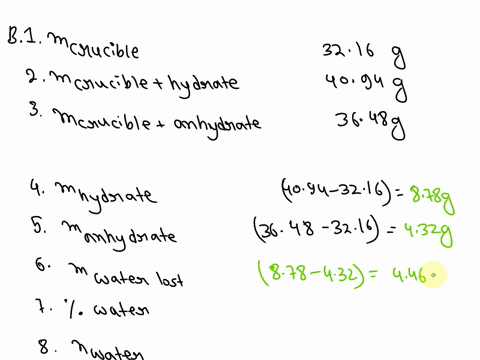 B.1. m crucible 32.16 g
2. m crucible + hydrate 40.94 g
3. m crucible + anhydrate 36.48 g
4. m hydrate (40.94-32.16) = 8.78g
5. m anhydrate (36.48 - 32.16) = 4.32g
6. m water lost (8.78-4.32) = 4.46
7. % water
8. n water